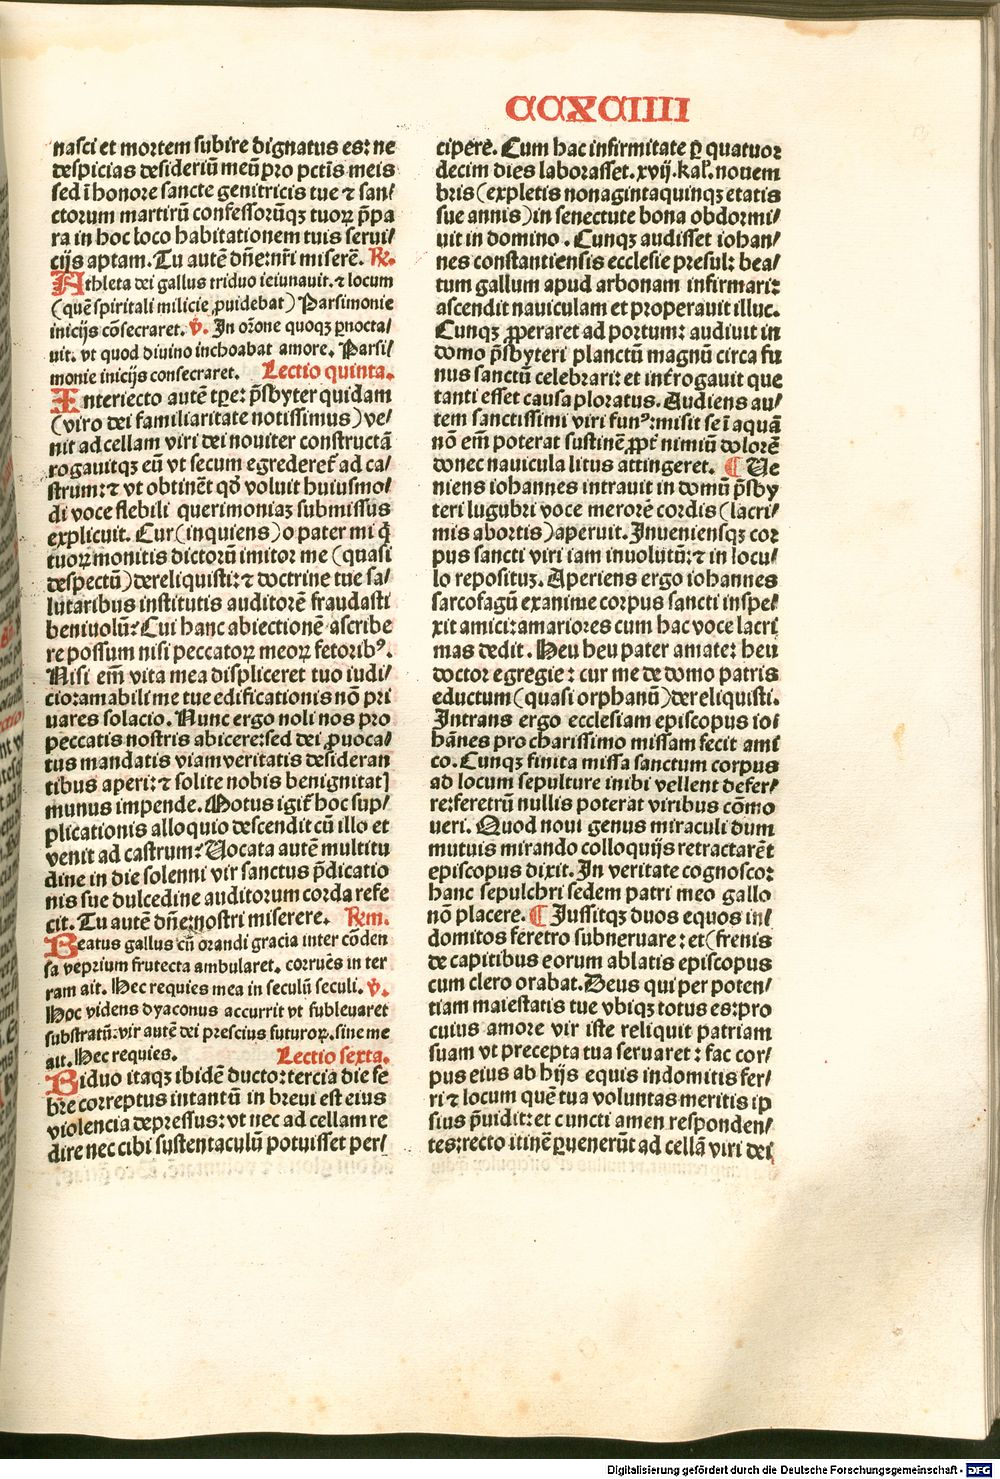 CCXCIIII
nasci et mortem subire dignatus es: ne
despicias desideriū meū pro pctīs meis
sed ī honore sancte genitricis tue ⁊ san/
ctorum martirū confessorūqꝫ tuoꝝ p̄pa
ra in hoc loco habitationem tuis serui/
cijs aptam. Tu autē dn̄e: nr̄i miserē. R̄.
Athleta dei gallus triduo ieiunauit. ⁊ locum
(quē spiritali milicie ꝓuidebat) Parsimonie
inicijs cōsecraret. v̄. In or̄one quoqꝫ ꝑnocta/
uit. vt quod diuino inchoabat amore. Parsi/
monie inicijs consecraret. Lectio quinta.
Interiecto autē tꝑe: p̄sbyter quidam
(viro dei familiaritate notissimus) ve/
nit ad cellam viri dei nouiter constructā
rogauitqꝫ eū vt secum egrederet᷑ ad ca/
strum: ⁊ vt obtinēt qd̄ voluit huiusmo/
di voce flebili querimoniaꝫ submissus
explicuit. Cur (inquiens) o pater mi q̄
tuoꝝ monitis dictorū imitor me (quasi
despectū) dereliquisti: ⁊ doctrine tue sa/
lutaribus institutis auditorē fraudasti
beniuolū? Cui hanc abiectionē ascribe
re possum nisi peccatoꝝ meoꝝ fetoribꝰ.
Nisi em̄ vita mea displiceret tuo iudi/
cio: amabili me tue edificationis nō pri
uares solacio. Nunc ergo noli nos pro
peccatis nostris abicere: sed dei ꝓuoca/
tus mandatis viam veritatis desideran
tibus aperi: ⁊ solite nobis benignitat]
munus impende. Motus igit᷑ hoc sup/
plicationis alloquio descendit cū illo et
venit ad castrum? Uocata autē multitu
dine in die solenni vir sanctus p̄dicatio
nis sue dulcedine auditorum corda refe
cit. Tu autē dn̄e: nostri miserere. Rem.
Beatus gallus cū orandi gracia inter cōden
sa veprium frutecta ambularet. corruēs in ter
ram ait. Hec requies mea in seculū seculi. v̄.
Hoc videns dyaconus accurrit vt subleuaret
substratū: vir autē dei prescius futuroꝝ. sine me
ait. Hec requies. Lectio sexta.
Biduo itaqꝫ ibidē ductor: tercia die fe
bre correptus intantū in breui est eius
violencia depressus: vt nec ad cellam re
dire nec cibi sustentaculū potuisset per/
cipere. Cum hac infirmitate ꝑ quatuor
decim dies laborasset. xvij. kal. nouem
bris (expletis nonagintaquinqꝫ etatis
sue annis) in senectute bona obdormi/
uit in domino. Cunqꝫ audisset iohan/
nes constantiensis ecclesie presul: bea/
tum gallum apud arbonam infirmari:
ascendit nauiculam et properauit illuc.
Cunqꝫ ꝓperaret ad portum: audiuit in
domo p̄sbyteri planctū magnū circa fu
nus sanctū celebrari: et int̄rogauit que
tanti esset causa ploratus. Audiens au/
tem sanctissimi viri funꝰ: misit se ī aquā
nō em̄ poterat sustinē ꝓpt̄ nimiū dolorē
donec nauicula litus attingeret. ¶ Ue
niens iohannes intrauit in domū p̄sby
teri lugubri voce merorē cordis (lacri/
mis abortis) aperuit. Inueniensqꝫ cor
pus sancti viri iam inuolutū: ⁊ in locu/
lo reposituꝫ. Aperiens ergo iohannes
sarcofagū exanime corpus sancti inspe/
xit amici: amariores cum hac voce lacri
mas dedit. Heu heu pater amate: heu
doctor egregie: cur me de domo patris
eductum (quasi orphanū) dereliquisti.
Intrans ergo ecclesiam episcopus io/
hānes pro charissimo missam fecit ami
co. Cunqꝫ finita missa sanctum corpus
ad locum sepulture inibi vellent defer/
re: feretrū nullis poterat viribus cōmo
ueri. Quod noui genus miraculi dum
mutuis mirando colloquijs retractarēt
episcopus dixit. In veritate cognosco:
hanc sepulchri sedem patri meo gallo
nō placere. ¶ Jussitqꝫ duos equos in/
domitos feretro subneruare: et (frenis
de capitibus eorum ablatis episcopus
cum clero orabat. Deus qui per poten/
tiam maiestatis tue vbiqꝫ totus es: pro
cuius amore vir iste reliquit patriam
suam vt precepta tua seruaret: fac cor/
pus eius ab hijs equis indomitis fer/
ri ⁊ locum quē tua voluntas meritis ip
sius p̄uidit: et cuncti amen responden/
tes: recto itinē ꝑuenerūt ad cellā viri dei
Digitalisierung gefördert durch die Deutsche Forschungsgemeinschaft - DFG